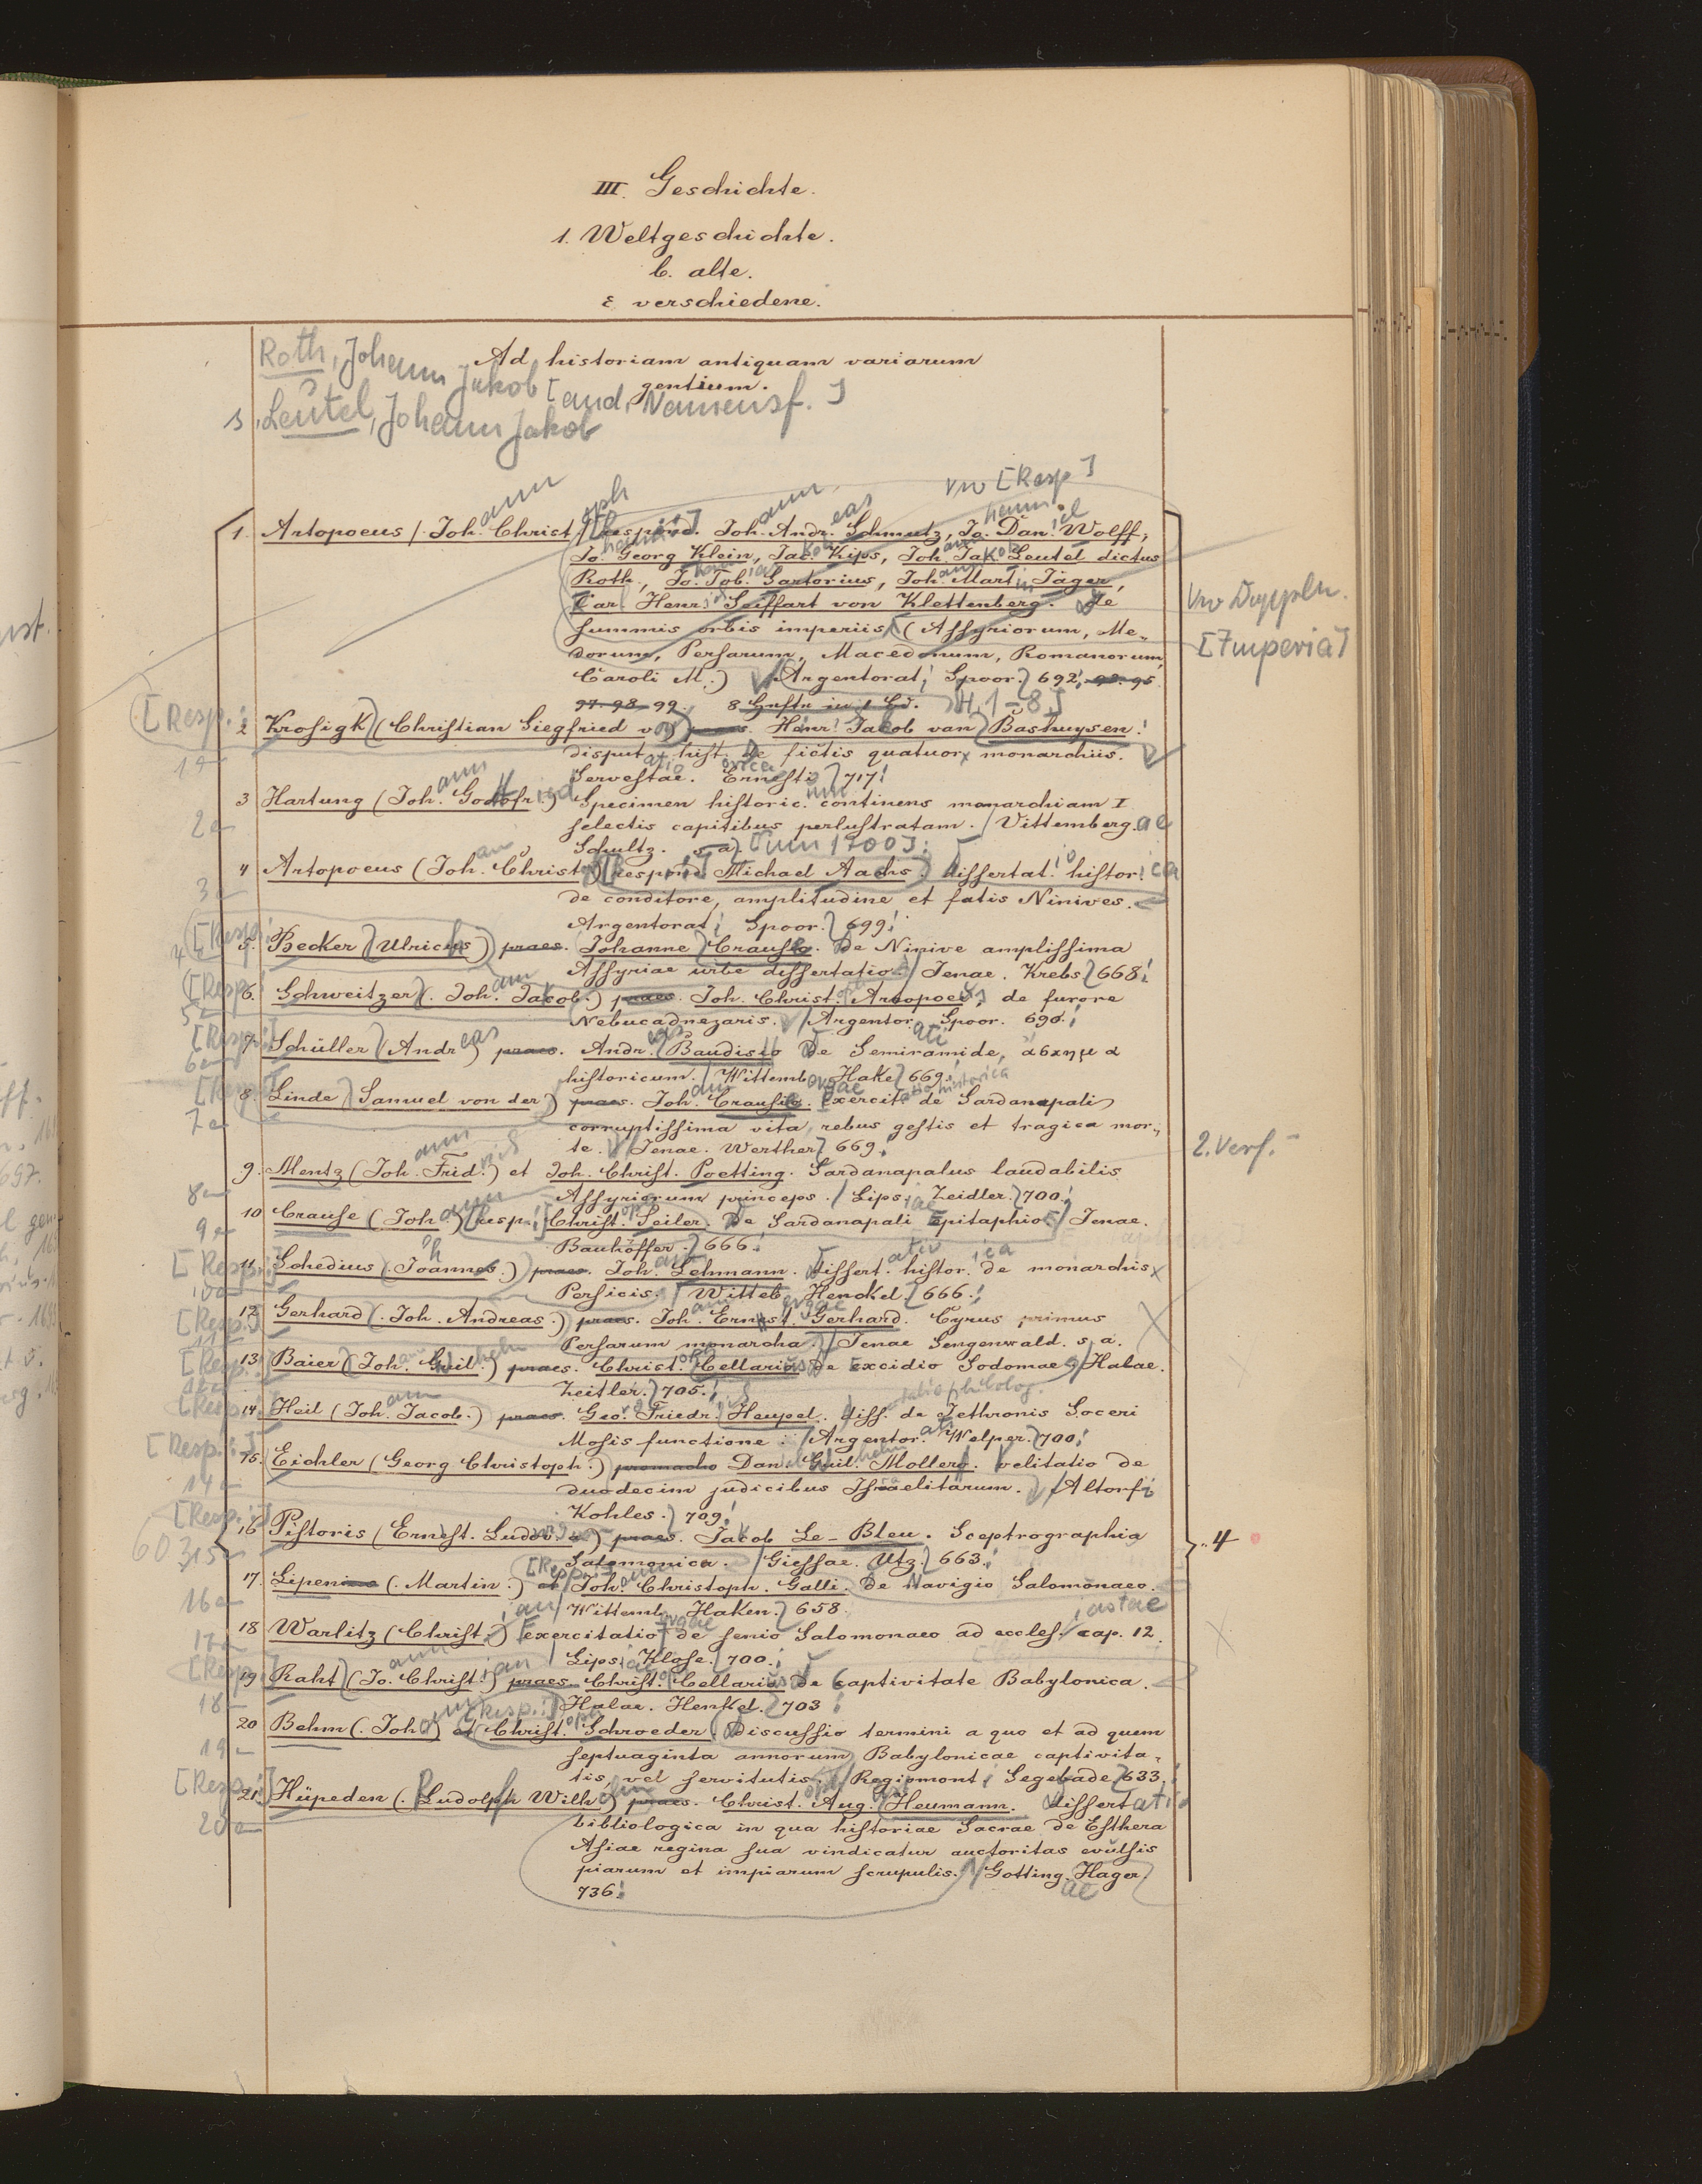 III. Geschichte.
1. Weltgeschichte.
b. alte.
ε verschiedene.
Ad historiam antiquam variarum
gentium.
Roth, Johann Jakob [and. Namensf.]
s. Leutel, Johann Jakob
vw [Resp]
1. Artopoeus (Joh. Christ.) respond. Joh. Andr. Schmutz, Jo. Dan. Wolff,
Jo. Georg Klein, Jac. Kips, Joh. Jak. Leutel dictus
Roth, Jo. Tob. Sartorius, Joh. Mart. Jäger,
Carl Henr. Seiffart von Klettenberg. de
summis orbis imperiis (Assyriorum, Me-
dorum, Persarum, Macedonum, Romanorum
Caroli M.) Argentorat. Spoor. 692. 93. 95.
97. 98. 99. 8 Hefte in 1 Bd. [H. 1-8]
vw Doppeln.
[Imperia]
[Resp.:]
2 Krosigk (Christian Siegfried v.) praes. Henr. Jacob van Bashuysen.
disputatio historica de fictis quatuor monarchiis.
Servestae. Ernesti 717.
3 Hartung (Joh. Godofr.) Specimen historic. continens monarchiam I
selectis capitibus perlustratam. Vittemberg.ae
Schultz. s. a. [um 1700].
4 Artopoeus (Joh. Christ.) respond. Michael Aachs. dissertat. histor.
de conditore, amplitudine et fatis Ninives.
Argentorat. Spoor. 699.
5. Becker (Ulricus) praes. Johanne Crauso. de Ninive amplissima
Assyriae urbe dissertatio. Jenae. Krebs 668.
6. Schweitzer (Joh. Jacob.) praes. Joh. Christ. Artopoeo, de furore
Nebucadnezaris. Argentor. Spoor. 690.
7. Schüller (Andreas) praes. Andr. Baudisio de Semiramide, ἄσκημα
historicum. Wittemb. Hake 669.
8. Linde (Samuel von der) praes. Joh. Crausio. exercit. de Sardanapali
corruptissima vita, rebus gestis et tragica mor-
te. Jenae. Werther 669.
2. Verf.
9. Mentz (Joh. Frid.) et Joh. Christ. Poetting. Sardanapalus laudabilis
Assyriorum princeps. Lips. Zeidler. 700.
10 Crause (Joh.) resp. Christ. Seiler. de Sardanapali epitaphio. Jenae.
Bauhöffer. 666.
11. Schedius (Joannes.) praes. Joh. Lehmann. dissert. histor. de monarchis
Persicis. Witteb. Henckel 666.
12. Gerhard (Joh. Andreas.) praes. Joh. Ernest. Gerhard. Cyrus primus
Persarum monarcha. Jenae Sengenwald. s. a.
13. Baier (Joh. Guil.) praes. Christ. Cellarius de excidio Sodomae. Halae.
Zeitler. 705.
14. Heil (Joh. Jacob.) praes. Geo. Friedr. Heupel. diss. de Jethronis Soceri
Mosis functione. Argentor. Welper. 700.
15. Eichler (Georg Christoph.) promacho Dan. Guil. Mollero. velitatio de
duodecim judicibus Israelitarum. Altorfi
Kohles. 709.
16 Pistoris (Ernest. Ludov.) praes. Jacob Le-Bleu. Sceptrographia
Salomonica. Giessae. Utz. 663.
4
17. Lipenius (Martin.) et Joh. Christoph. Galli. de Navigio Salomonaeo.
Wittemb. Haken. 658.
18 Warlitz (Christ.) exercitatio de senio Salomonaeo ad eccles. cap. 12.
Lips. Klose. 700.
19 Raht (Jo. Christ.) praes. Christ. Cellarius de captivitate Babylonica.
Halae. Henkel. 703
20 Behm (Joh.) et Christ. Schroeder. Discussio termini a quo et ad quem
septuaginta annorum Babylonicae captivita-
tis vel servitutis. Regiomont. Segebade 633.
21. Hüpeden (Ludolph Wilh.) praes. Christ. Aug. Heumann. dissertatio
bibliologica in qua historiae Sacrae de Esthera
Asiae regina sua vindicatur auctoritas evulsis
piarum et impiarum scrupulis. Gotting. Hager.
736.